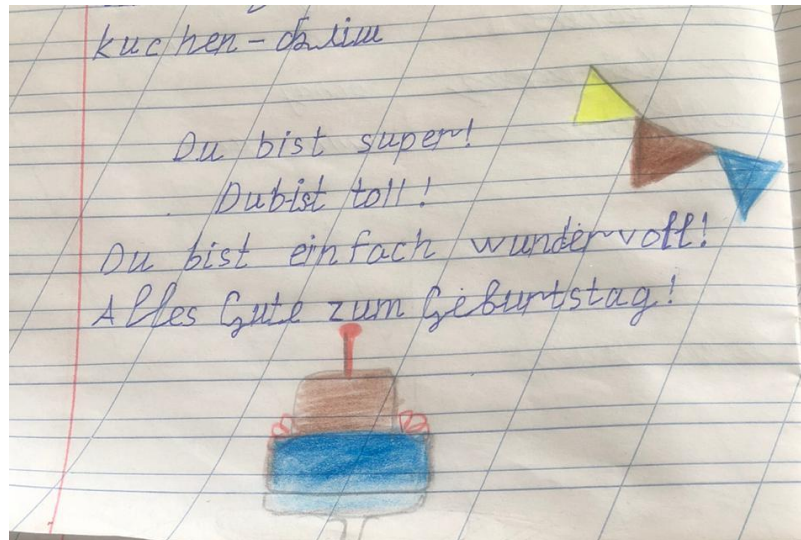 kuchen - бәліш
Du bist super!
Du bist toll!
Du bist einfach wundervoll!
Alles Gute zum Geburtstag!